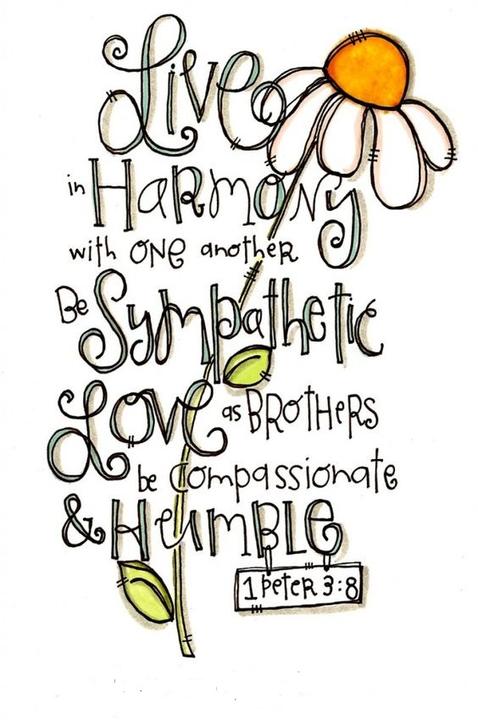 Live
in HARMONY
with ONE another
Be Sympathetic
Love as BROTHERS
be compassionate
& HUMBLE
1 Peter 3:8